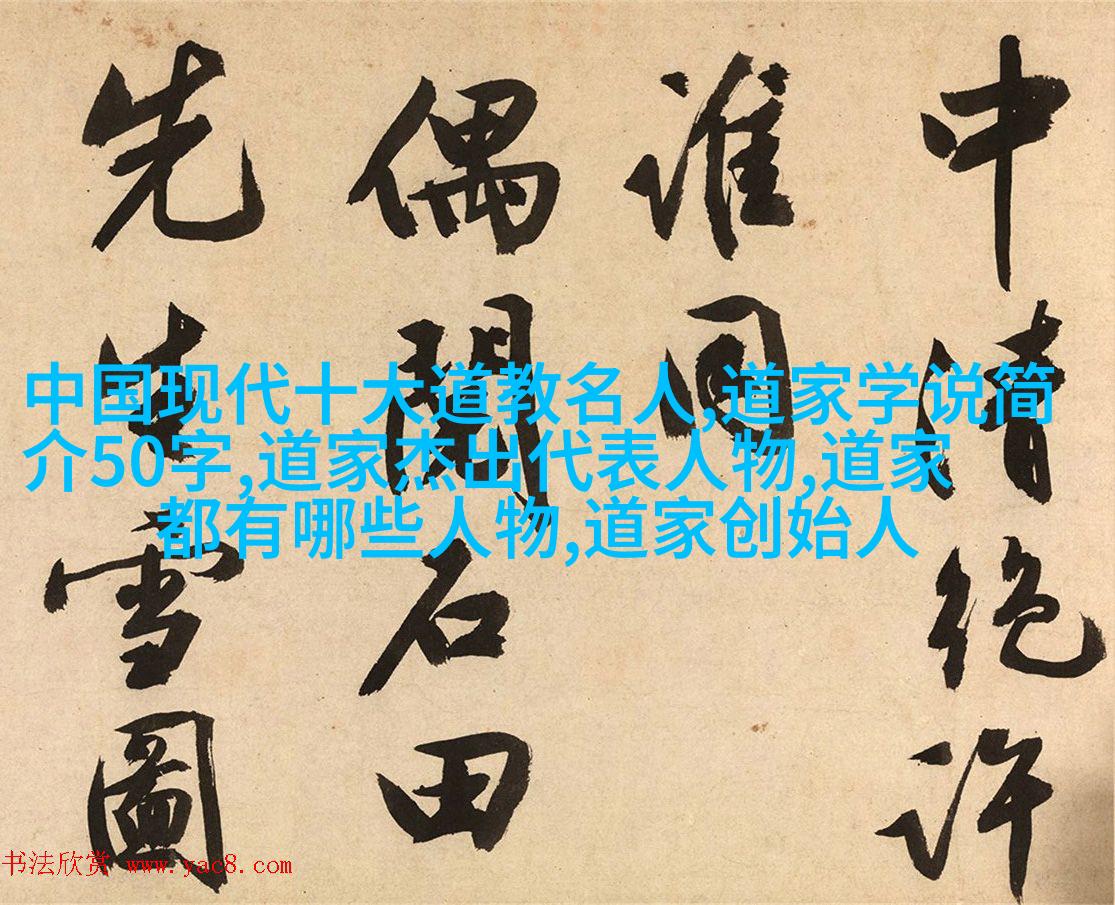 中清絕許
誰同
偶閱石田
先生雪圖
中国现代十大道教名人,道家学说简
介50字,道家杰出代表人物,道家
都有哪些人物,道家创始人
书法欣赏 www.yac8.com